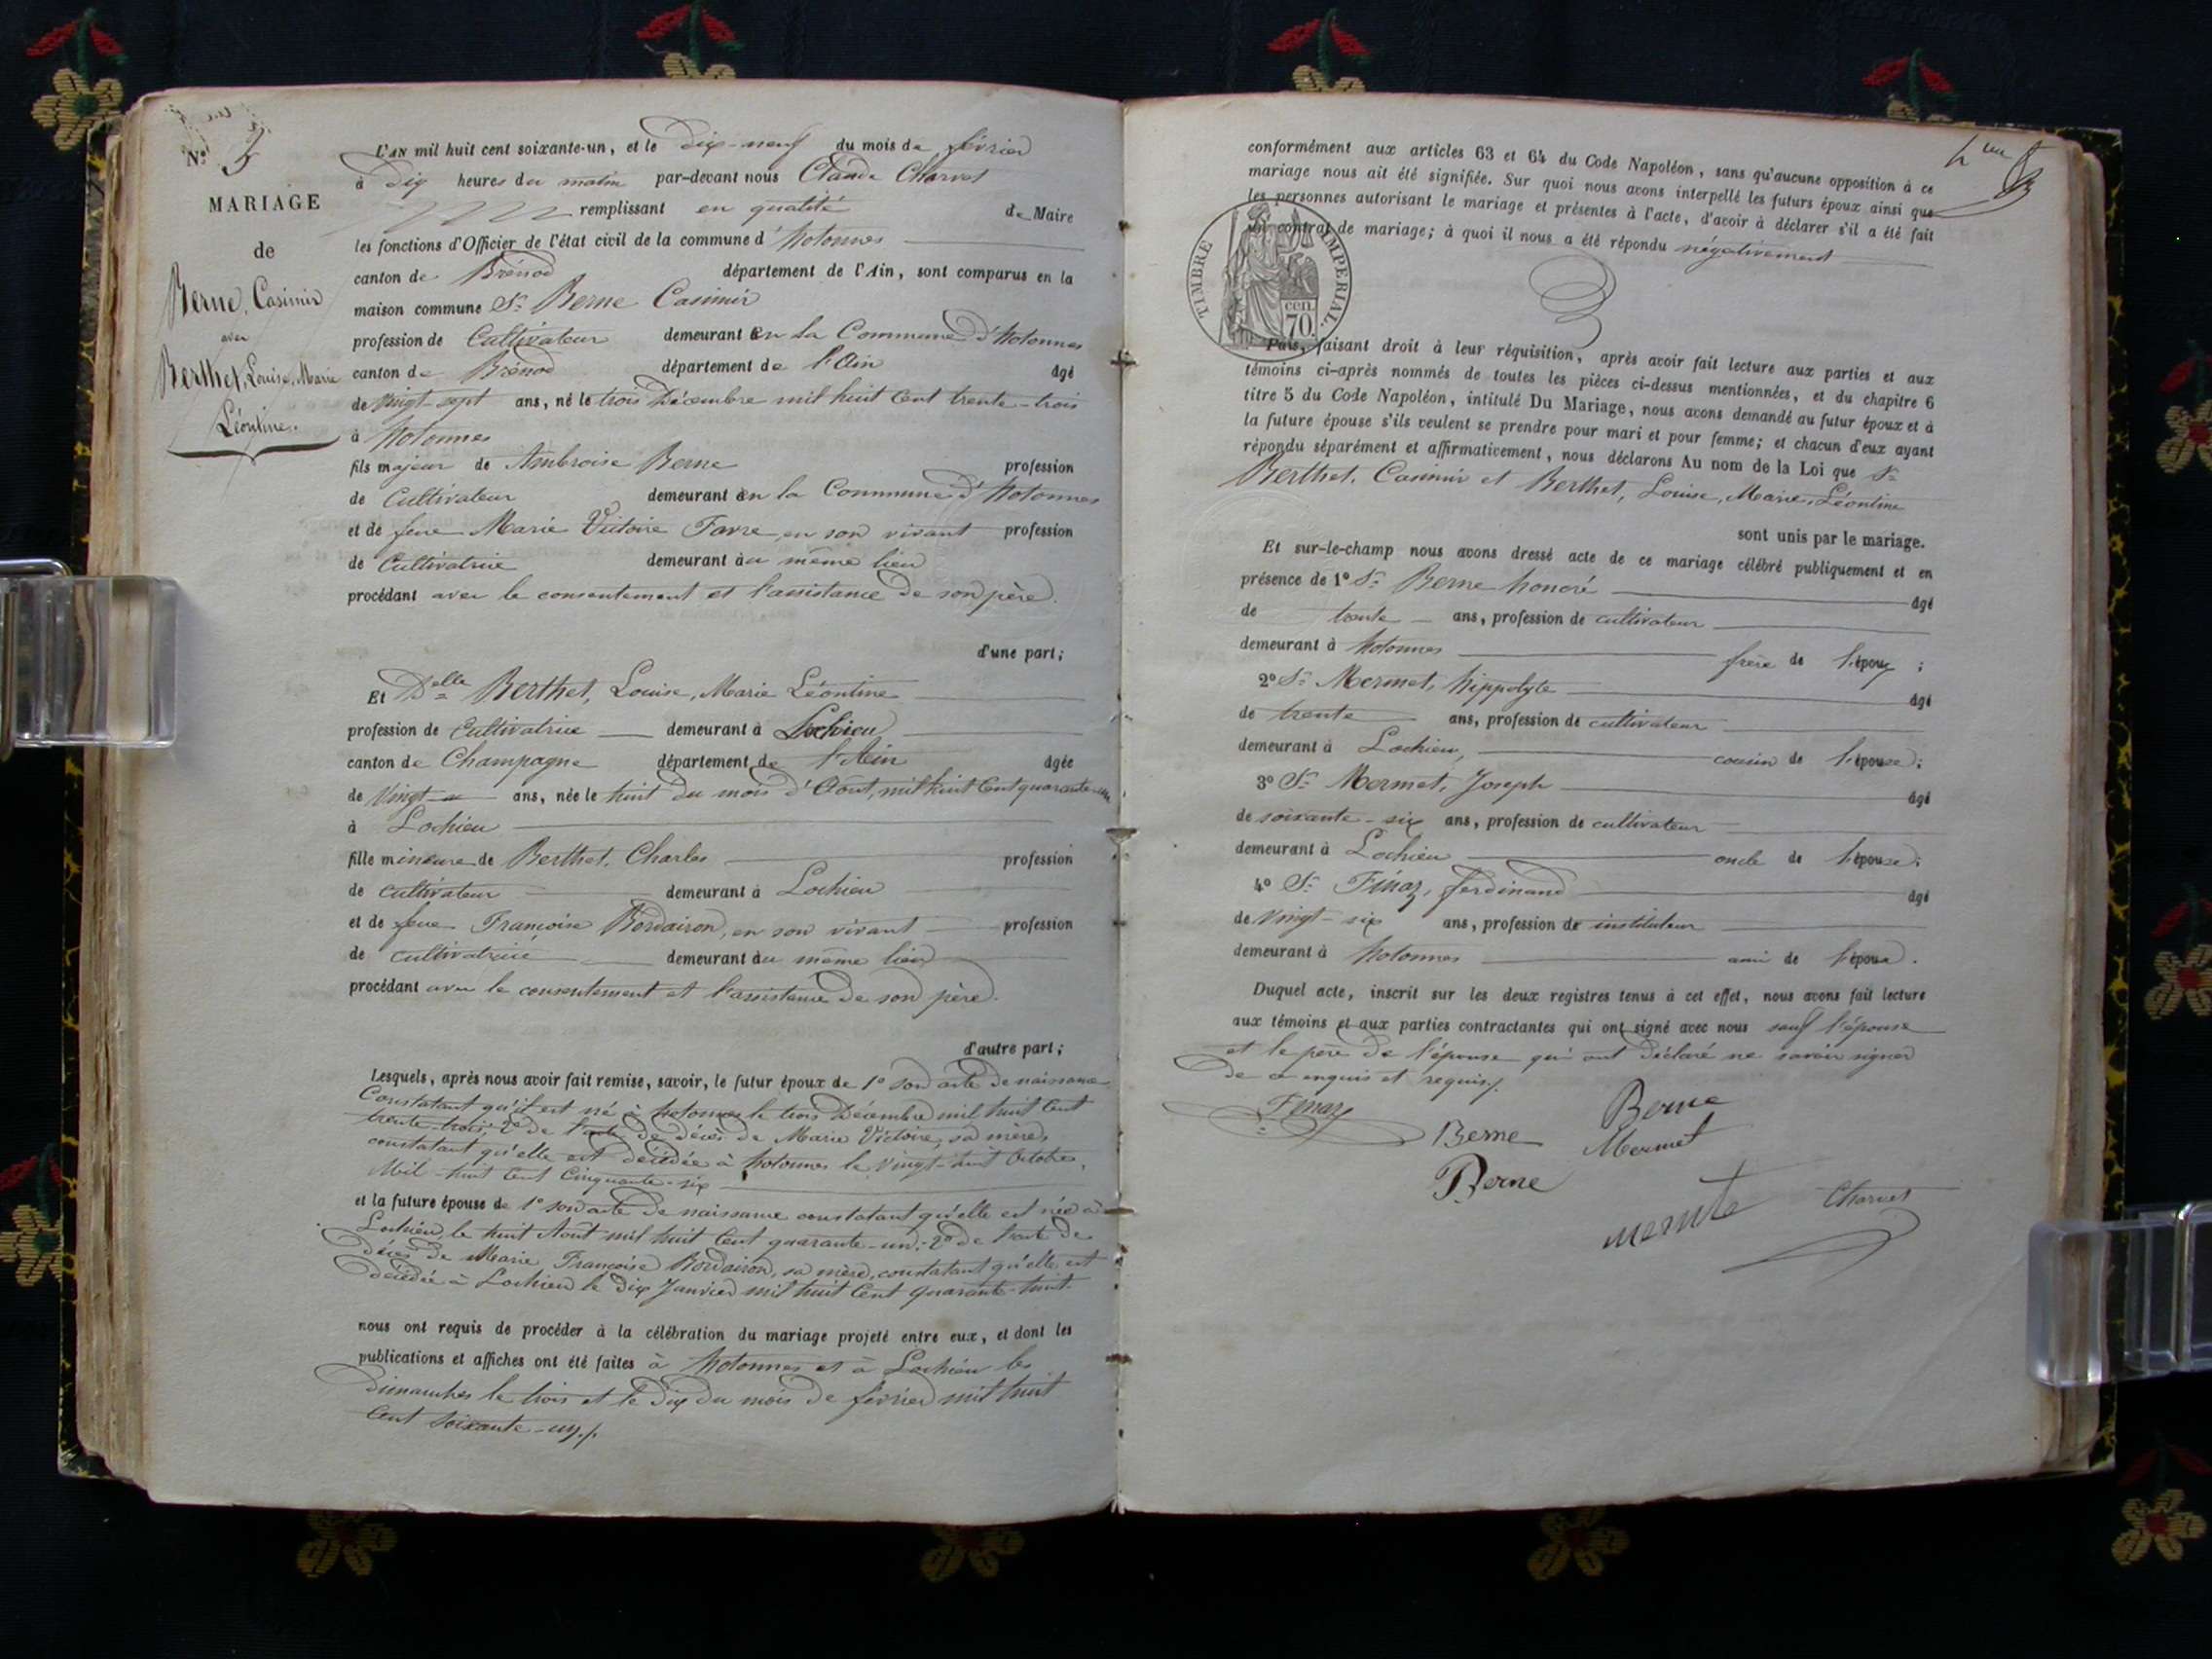 N° 3
MARIAGE
de
Berne, Casimir
avec
Berthet, Louise, Marie
Léontine.
L'AN mil huit cent soixante-un, et le dix-neuf du mois de février
à dix heures du matin par-devant nous Claude Charvet
remplissant en qualité de Maire
les fonctions d'Officier de l'état civil de la commune d'hotonnes
canton de Brénod département de l'Ain, sont comparus en la
maison commune Sr Berne Casimir
profession de Cultivateur demeurant en la Commune d'hotonnes
canton de Brénod département de l'Ain âgé
de vingt-sept ans, né le trois Décembre mil huit Cent trente-trois
à hotonnes
fils majeur de Ambroise Berne profession
de Cultivateur demeurant en la Commune d'hotonnes
et de feue Marie Victoire Favre, en son vivant profession
de Cultivatrice demeurant au même lieu
procédant avec le consentement et l'assistance de son père.
d'une part;
Et Delle Berthet, Louise, Marie Léontine
profession de Cultivatrice demeurant à Lochieu
canton de Champagne département de l'Ain âgée
de Vingt ans, née le huit du mois d'Août, mil huit Cent quarante-un
à Lochieu
fille mineure de Berthet, Charles profession
de cultivateur demeurant à Lochieu
et de feue Françoise Bordairon, en son vivant profession
de cultivatrice demeurant au même lieu
procédant avec le consentement et l'assistance de son père.
d'autre part;
Lesquels, après nous avoir fait remise, savoir, le futur époux de 1° son acte de naissance
Constatant qu'il est né à hotonnes le trois Décembre mil huit Cent
trente-trois; 2° de l'acte de décès de Marie Victoire, sa mère,
constatant qu'elle est décédée à hotonnes le vingt-huit Octobre,
Mil-huit Cent Cinquante-six
et la future épouse de 1° son acte de naissance constatant qu'elle est née à
Lochieu, le huit Août mil huit Cent quarante-un; 2° de l'acte de
décès de Marie Françoise Bordairon, sa mère, constatant qu'elle est
décédée à Lochieu le dix Janvier mil huit Cent quarante-huit.
nous ont requis de procéder à la célébration du mariage projeté entre eux, et dont les
publications et affiches ont été faites à hotonnes et à Lochieu les
dimanches le trois et le dix du mois de février mil huit
Cent soixante-un./.
conformément aux articles 63 et 64 du Code Napoléon, sans qu'aucune opposition à ce
mariage nous ait été signifiée. Sur quoi nous avons interpellé les futurs époux ainsi que
les personnes autorisant le mariage et présentes à l'acte, d'avoir à déclarer s'il a été fait
un contrat de mariage; à quoi il nous a été répondu négativement
TIMBRE IMPERIAL.
cen.
70.
Puis, faisant droit à leur réquisition, après avoir fait lecture aux parties et aux
témoins ci-après nommés de toutes les pièces ci-dessus mentionnées, et du chapitre 6
titre 5 du Code Napoléon, intitulé Du Mariage, nous avons demandé au futur époux et à
la future épouse s'ils veulent se prendre pour mari et pour femme; et chacun d'eux ayant
répondu séparément et affirmativement, nous déclarons Au nom de la Loi que Sr
Berthet, Casimir et Berthet, Louise, Marie, Léontine
sont unis par le mariage.
Et sur-le-champ nous avons dressé acte de ce mariage célébré publiquement et en
présence de 1° Sr Berne honoré âgé
de trente ans, profession de cultivateur
demeurant à hotonnes frère de l'époux ;
2° Sr Mermet, hippolyte âgé
de trente ans, profession de cultivateur
demeurant à Lochieu, cousin de l'épouse;
3° Sr Mermet, Joseph âgé
de soixante-six ans, profession de cultivateur
demeurant à Lochieu oncle de l'épouse;
4° Sr Finaz, ferdinand âgé
de vingt-six ans, profession de instituteur
demeurant à hotonnes ami de l'époux.
Duquel acte, inscrit sur les deux registres tenus à cet effet, nous avons fait lecture
aux témoins et aux parties contractantes qui ont signé avec nous sauf l'épouse
et le père de l'épouse qui ont déclaré ne savoir signer
de ce enquis et requis./.
Finaz
Berne
Berne
Mermet
Berne
Charvet